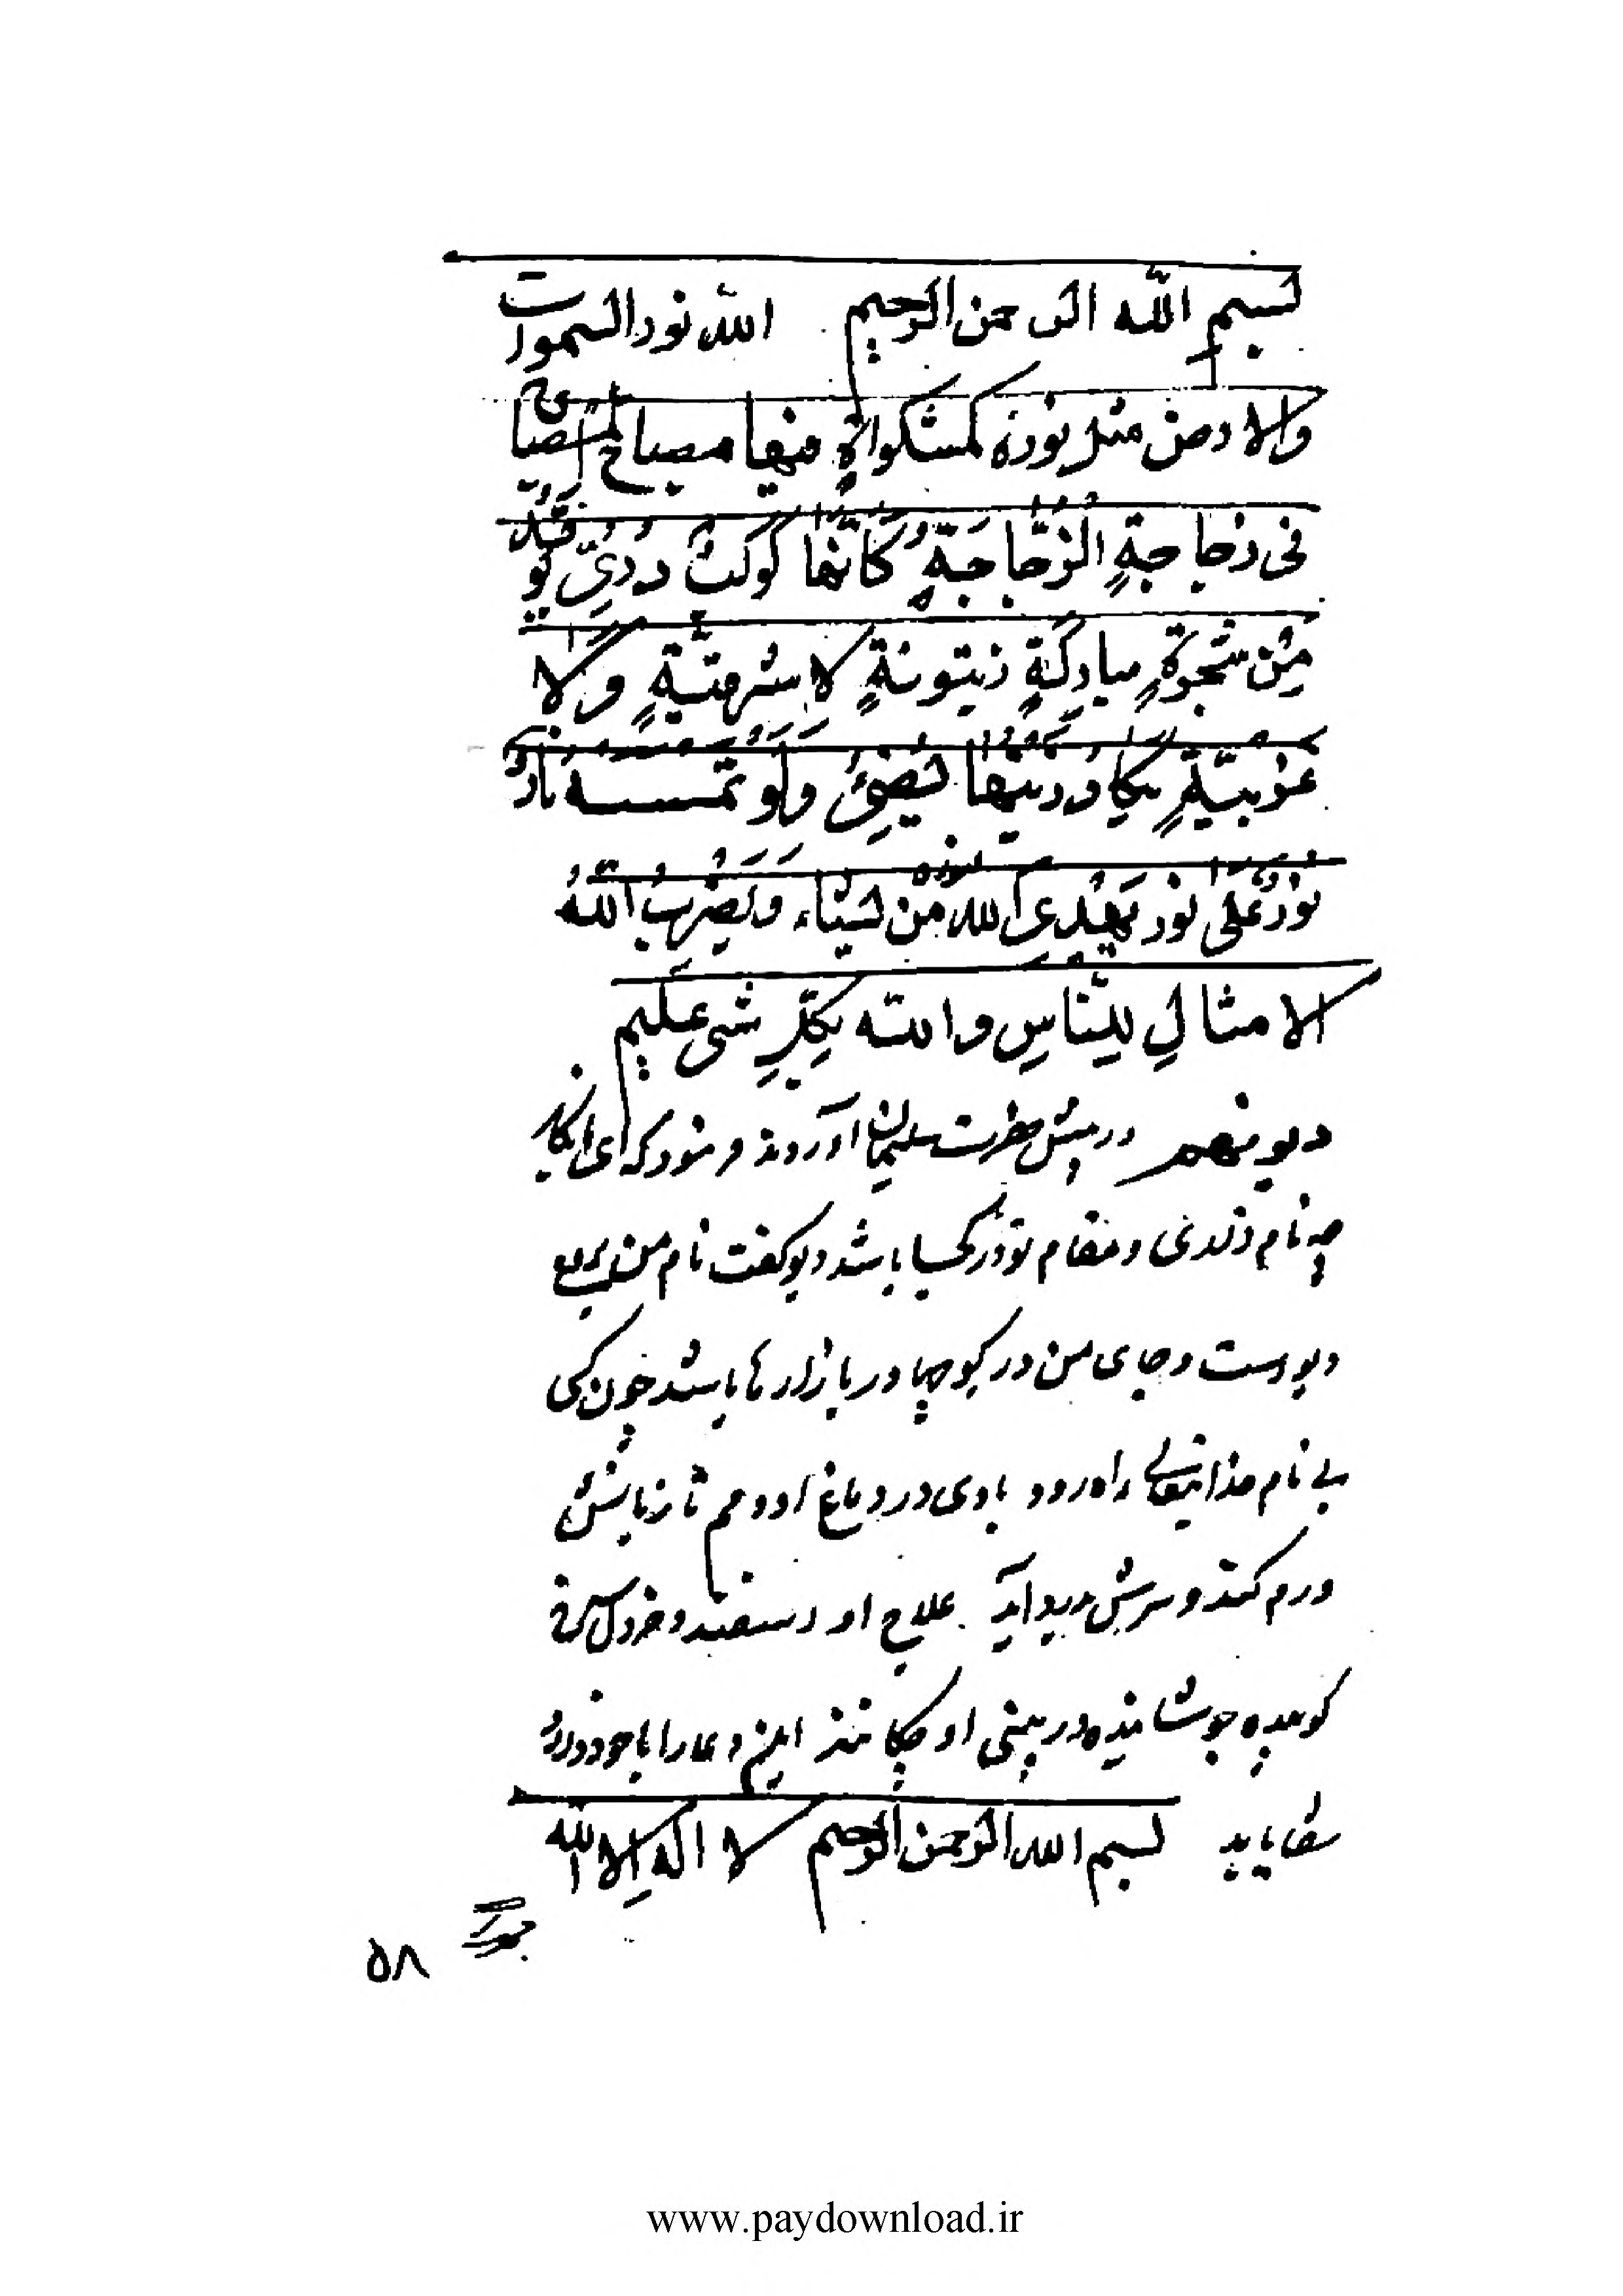 بسم الله الرحمن الرحیم الله نور السموات
والارض مثل نوره كمشكواة فیها مصباح المصباح
فی زجاجةٍ الزُّجاجَةِ كَأنَّها كَوكَبٌ دُرّیٌّ یُوقَدُ
مِن شَجَرَةٍ مبارِكَةٍ زیتونةٍ لا شرقیَّةٍ ولا
غربیّةٍ یكادُ زیتُها یُضیئُ وَلَو تمسسه نارٌ
نُورٌ عَلی نور یَهْدِی الله لنوره مَن یشاء وَیَضْرِبُ اللّٰهُ
الامثالِ لِلنّاسِ والله بِكلِّ شی عَلیم
دیو نهم در پیش حضرت سلیمان آوردند فرمود که ای نابکار
چه نام داری و مقام تو در کجا باشد دیو گفت نام من
دیو است و جای من در کوچها و در بازارها باشد چون کسی
بی نام خدایتعالی راه رود بادی در دماغ او دمم تا زبانش
ورم کند و سرش بدرد آید. علاج او اسفند و خردل
کوبیده جوشانیده در بینی او چکانند این دعا را با خود دارد
شفا یابد بسم الله الرحمن الرحیم لا اله الا الله
۵۸
www.paydownload.ir